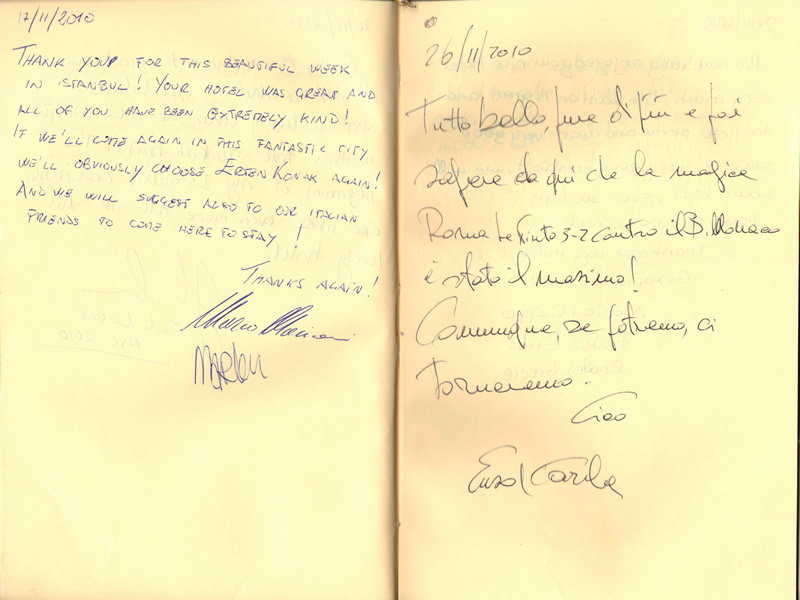 17/11/2010
THANK YOUP FOR THIS BEAUTIFUL WEEK
IN ISTANBUL! YOUR HOTEL WAS GREAT AND
ALL OF YOU HAVE BEEN EXTREMELY KIND!
IF WE'LL COME AGAIN IN THIS FANTASTIC CITY
WE'LL OBVIOUSLY CHOOSE ERTEN KONAK AGAIN!
AND WE WILL SUGGEST ALSO TO OUR ITALIAN
FRIENDS TO COME HERE TO STAY!
THANKS AGAIN!
Marco
26/11/2010
Tutto bello pure di più e poi
sapere da qui che la magica
Roma ha vinto 3-2 contro il B. Monaco
è stato il massimo!
Comunque, se potremo, ci
torneremo.
Ciao